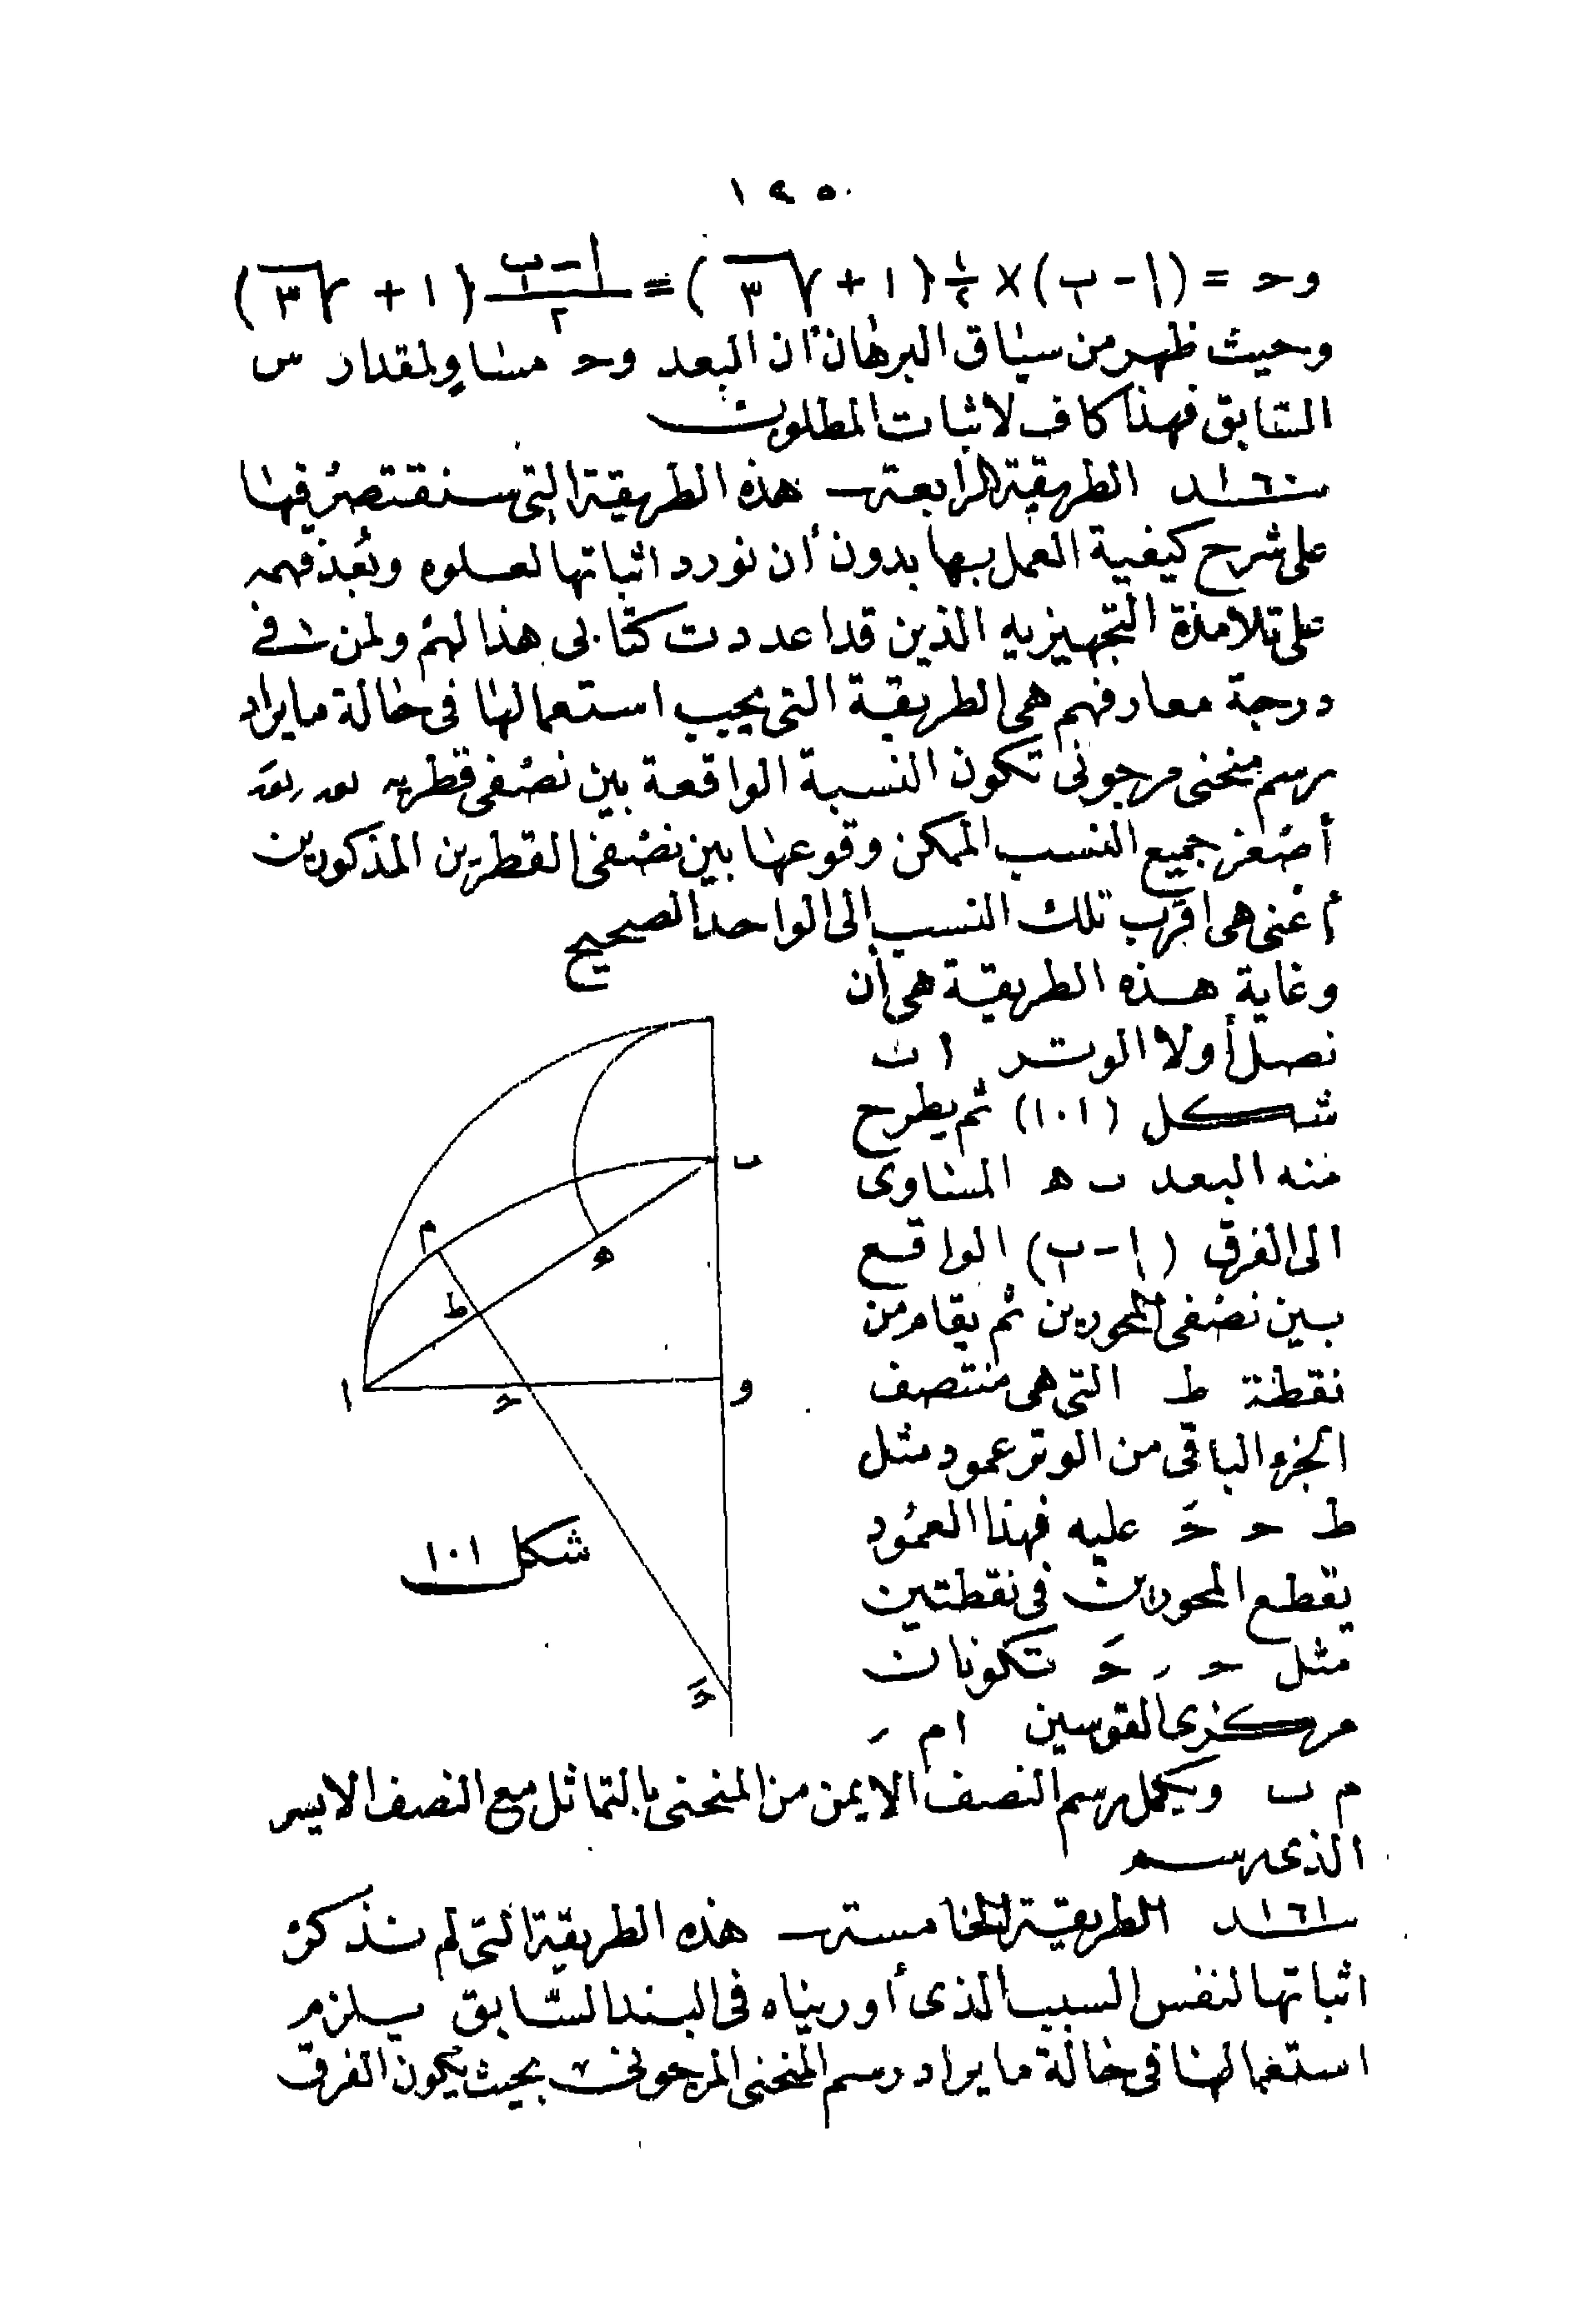 ١٢٥
وحـ = (ا - ب) × ١/٢ {١ + √٣} = (ا - ب)/٢ {١ + √٣}
وحيث ظهر من سياق البرهان أن البعد وحـ مساوٍ لمقدار س
السابق فهذا كاف لاثبات المطلوب
١٦٠ـد الطريقة الرابعة هذه الطريقة التي سنقتصر فيها
على شرح كيفية العمل بها بدون أن نورد اثباتها لعلوه وبُعد فهمه
على تلامذة التجهيزيه الذين قد اعددت كتابى هذا لهم ولمن فى
درجة معارفهم هى الطريقة التى يجب استعمالها فى حالة ما يراد
رسم منحنى مرجونى تكون النسبة الواقعة بين نصفى قطريه نه ر نهَ
أصغر جميع النسب الممكن وقوعها بين نصفى القطرين المذكورين
أعنى هى اقرب تلك النسب الى الواحد الصحيح
وغاية هذه الطريقة هى أن
نصل أولا الوتر ا ب
شكل (١٠١) ثم يطرح
منه البعد ب ه المساوى
الى الفرق (ا - ب) الواقع
بين نصفى المحورين ثم يقام من
نقطة ط التى هى منتصف
الجزء الباقى من الوتر عمود مثل
ط حـ حـَ عليه فهذا العمود
يقطع المحورين فى نقطتين
مثل حـ ر حـَ تكونان
مركزى القوسين ا م ر
م ب ويكمل رسم النصف الايمن من المنحنى بالتماثل مع النصف الايسر
الذى رسم
١٦١ـد الطريقة الخامسة هذه الطريقة التى لم نذكر
اثباتها لنفس السبب الذى أوريناه فى البند السابق يلزم
استعمالها فى حالة ما يراد رسم المنحنى المرجونى بحيث يكون الفرق
ب
م
ه
ط
ا
حـ
و
حـَ
شكل ١٠١